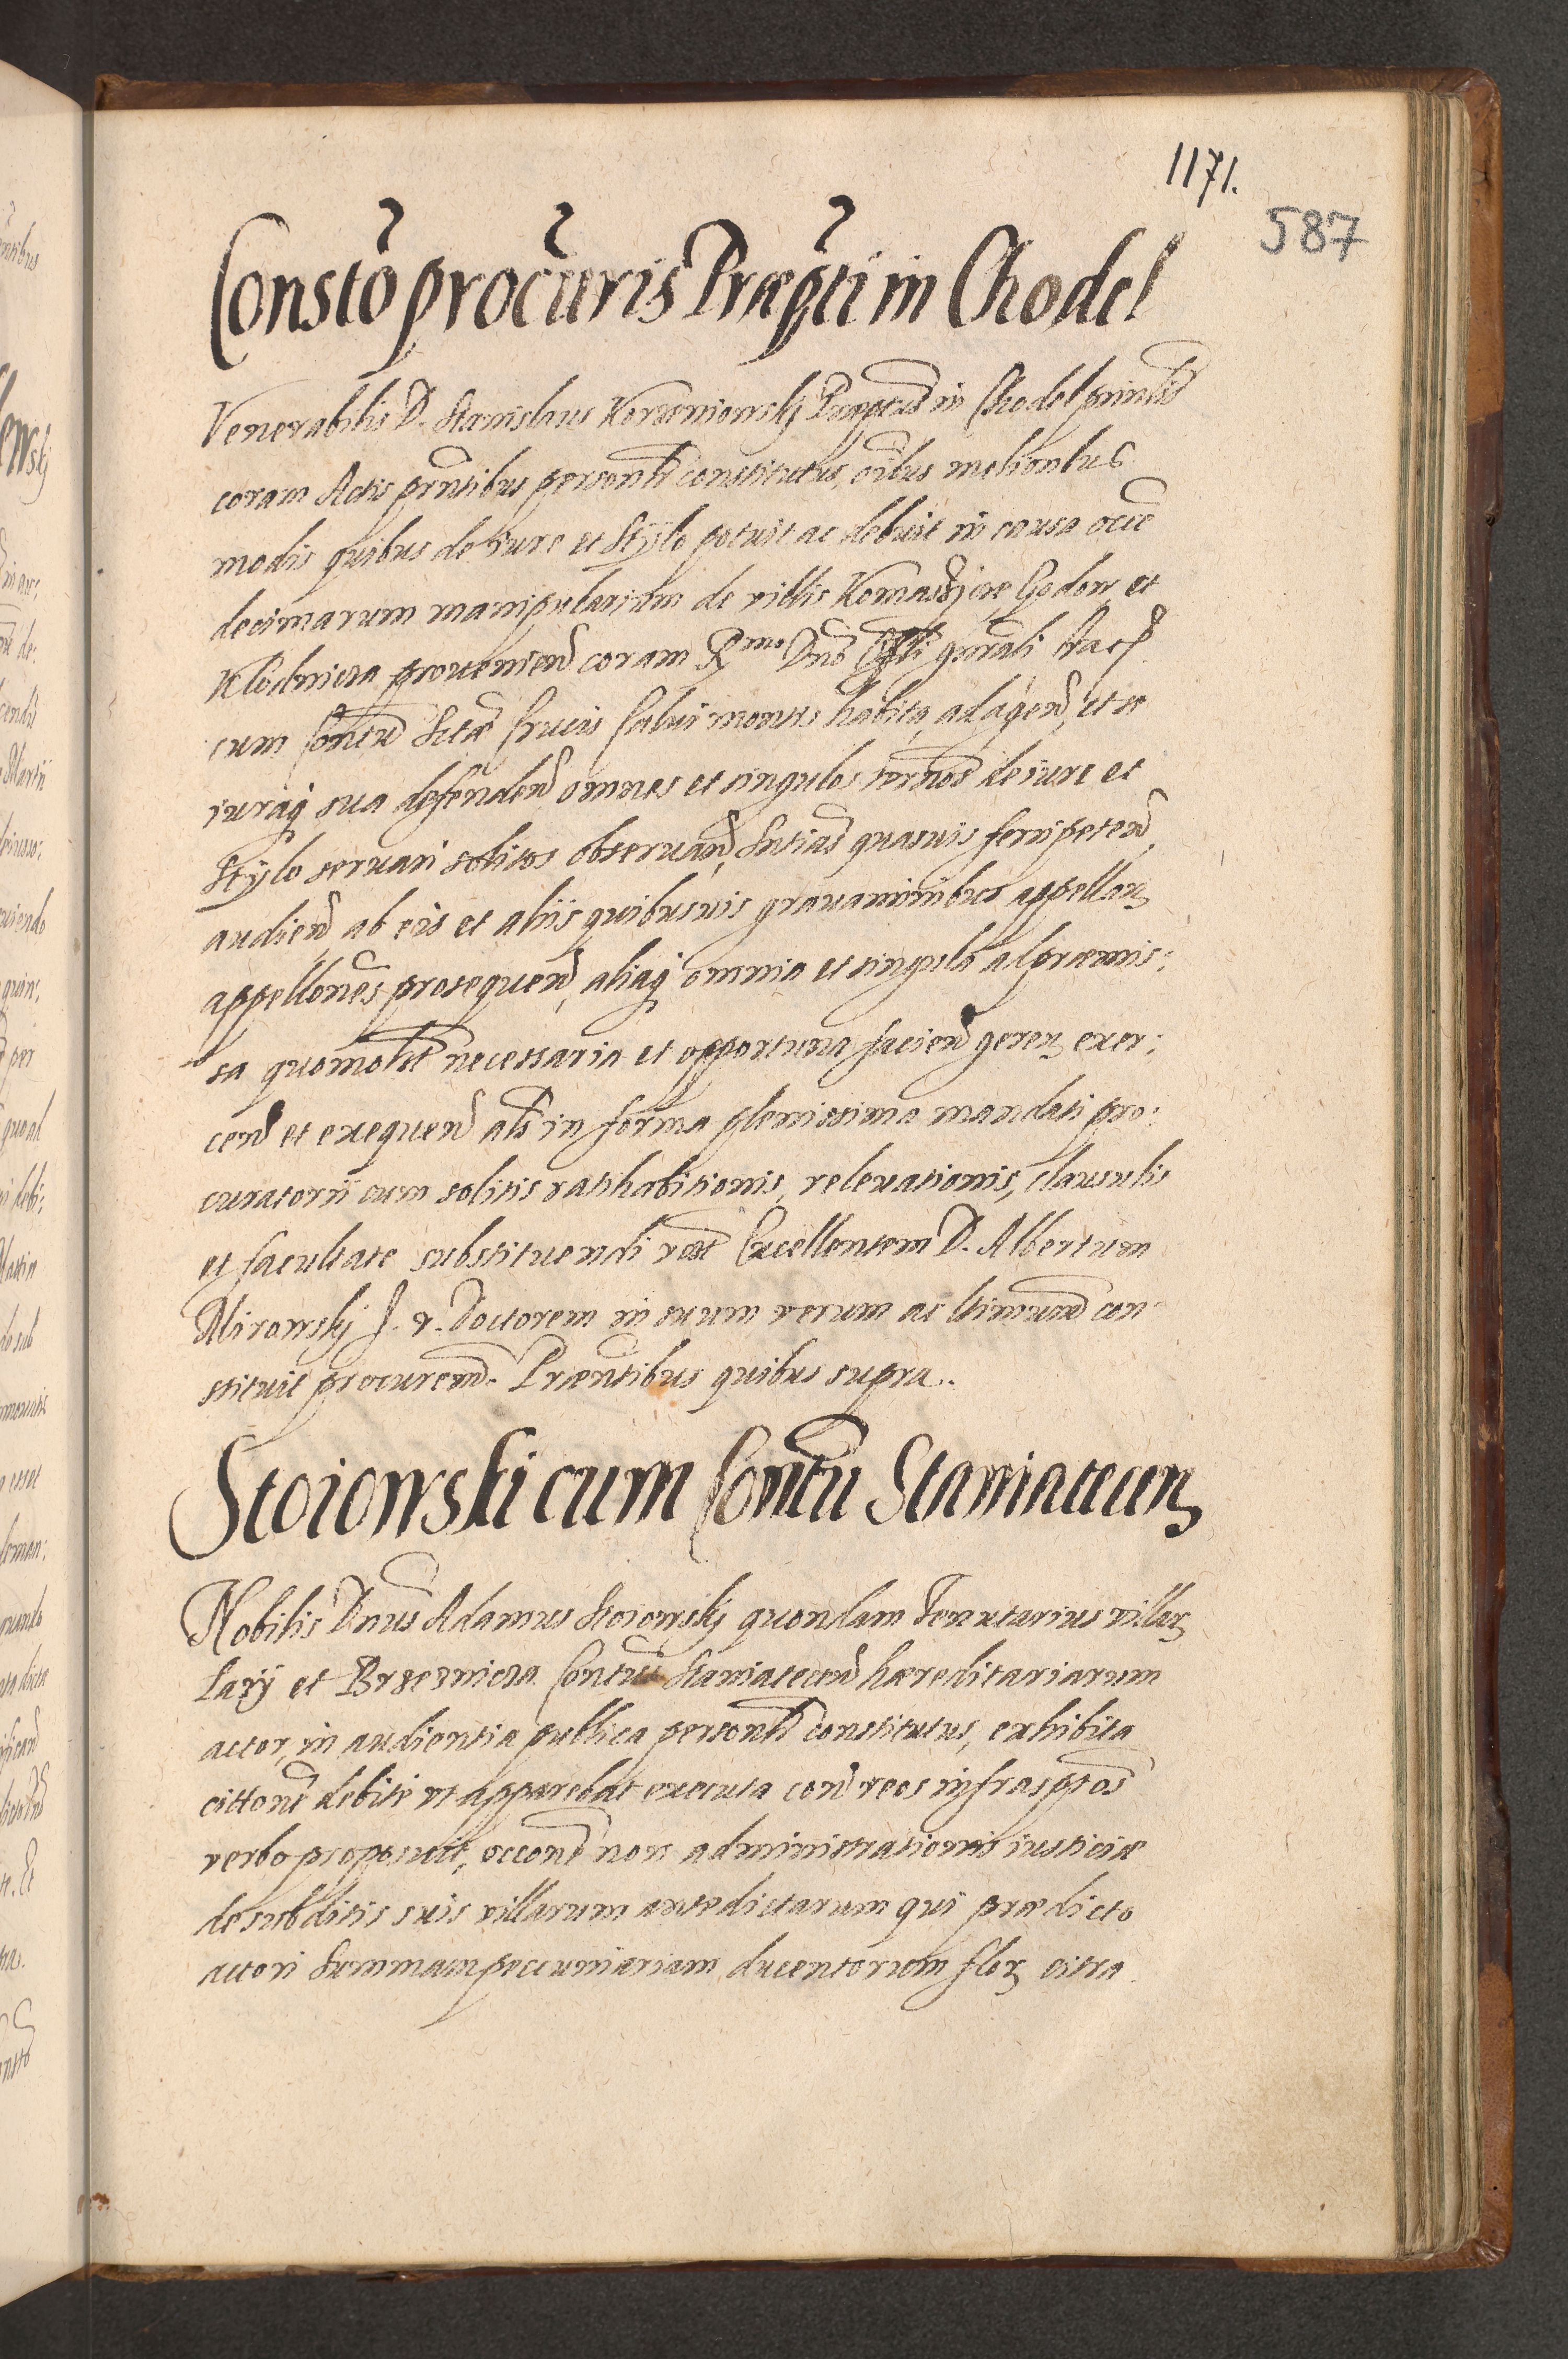 1171.
587
Constõ procũris Præp̃ti in Chodel
Venerabilis D. Stanislaus Korzeniowskj Præptus in Chodel
coram Actis prñtibus personlr constitutus, oĩbus melioribus
modis quibus de iure et Stylo potuit ac debuit in causa occe
decimarum manipularium de villis Komaszice Godow et
Klodnicza proueniend coram Rmo Dno Offli gñrali Crac.
cum Contu Sctæ Crucis Calui montis habita, ad agend, et se
iuraq sua defendend omnes et singulos termos de iure et
Stylo seruari solitos obseruand, Sntias quasuis ferri petend,
audiend ab eis et aliis quibusuis grauaminibus appellan
appellones prosequend, aliaq omnia et singula ad præmis:
sa quomolt necessaria et opportuna faciend geren exer:
cend et exequend als in forma plenissima mandati pro:
curatorii cum solitis ratihabitionis, releuationis, clausulis
et facultate substituendi Excellentem D. Albertum
Mirowskj J. V. Doctorem in suum verum ac ltimum con
stituit procurem. Præntibus quibus supra.
Stoiowski cum Contu Staniatecen
Nobilis Dnus Adamus Stoiowskj quondam Tenutarius villar
Lazy et Brzeznicza Contus Staniatecen hæreditariarum
actor, in audientia publica personlr constitutus, exhibita
cittone debite ut apparebat executa con reos infrasptos
verbo proposuit, occone non administrationis iusticiæ
de subditis suis villarum antedictarum qui prædicto
actori Summam pecuniariam ducentorum flor citra